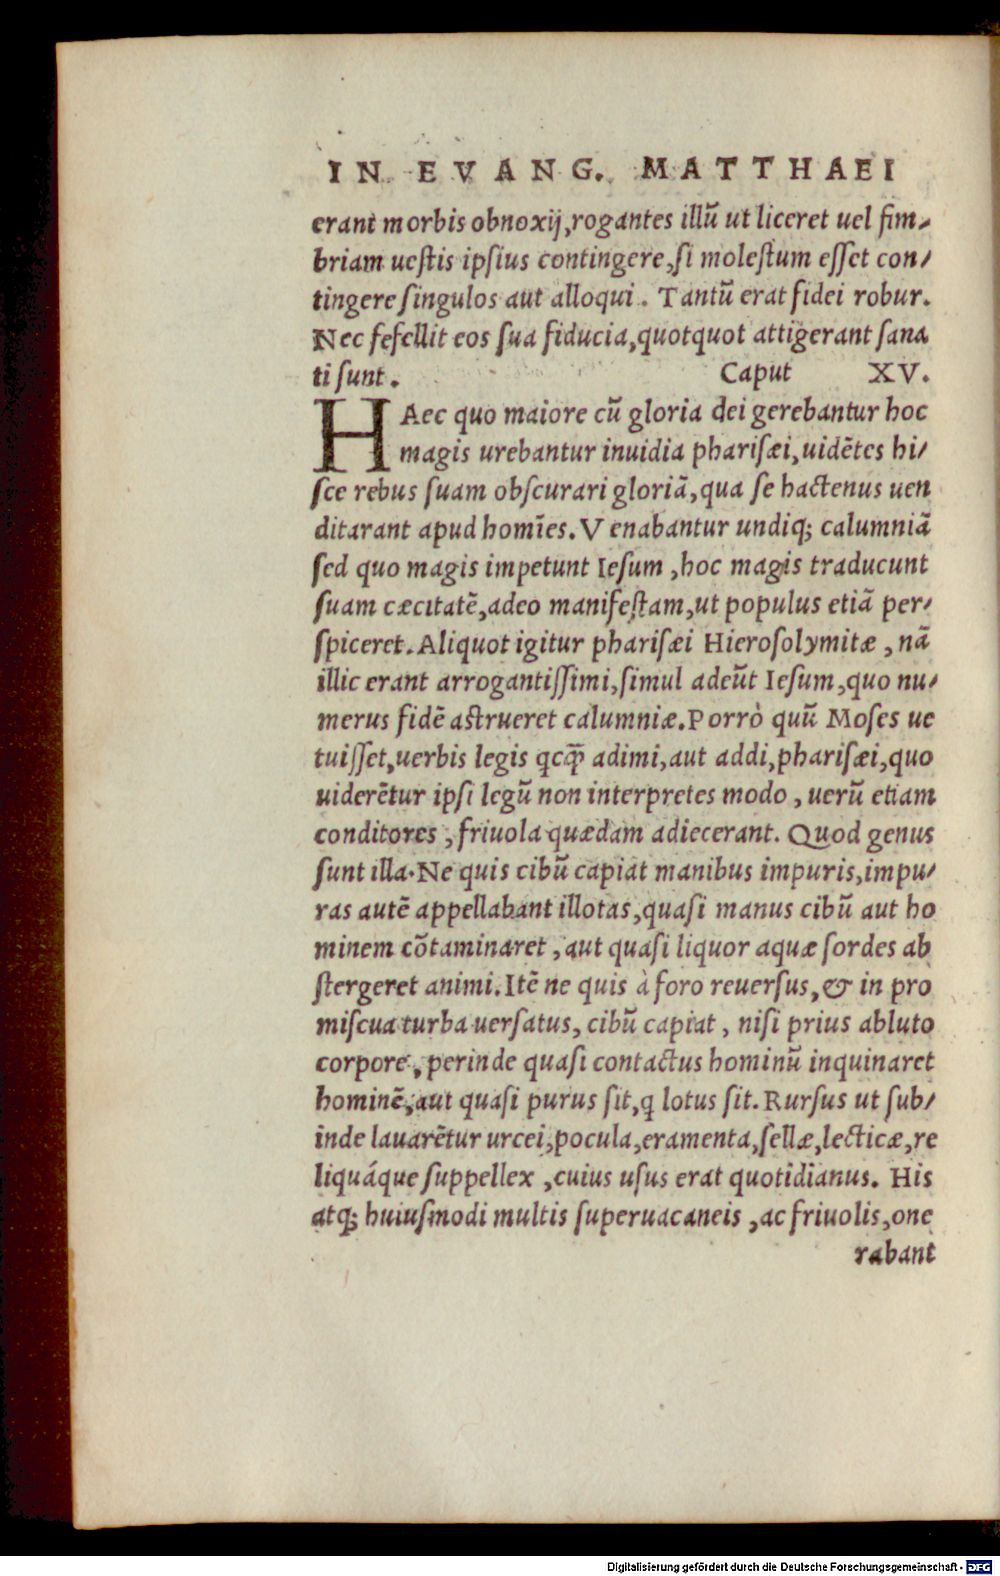 IN EVANG. MATTHAEI
erant morbis obnoxij, rogantes illũ ut liceret uel fim-
briam uestis ipsius contingere, si molestum esset con/
tingere singulos aut alloqui. Tantũ erat fidei robur.
Nec fefellit eos sua fiducia, quotquot attigerant sana
ti sunt. Caput XV.
HAec quo maiore cũ gloria dei gerebantur hoc
magis urebantur inuidia pharisæi, uidẽtes hi/
sce rebus suam obscurari gloriã, qua se hactenus uen
ditarant apud homĩes. Venabantur undiq; calumniã
sed quo magis impetunt Iesum, hoc magis traducunt
suam cæcitatẽ, adeo manifestam, ut populus etiã per/
spiceret. Aliquot igitur pharisæi Hierosolymitæ, nã
illic erant arrogantissimi, simul adeũt Iesum, quo nu/
merus fidẽ astrueret calumniæ. Porrò quũ Moses ue
tuisset, uerbis legis qcq̃ adimi, aut addi, pharisæi, quo
uiderẽtur ipsi legũ non interpretes modo, uerũ etiam
conditores, friuola quædam adiecerant. Quod genus
sunt illa. Ne quis cibũ capiat manibus impuris, impu/
ras autẽ appellabant illotas, quasi manus cibũ aut ho
minem cõtaminaret, aut quasi liquor aquæ sordes ab
stergeret animi. Itẽ ne quis à foro reuersus, & in pro
miscua turba uersatus, cibũ capiat, nisi prius abluto
corpore, perinde quasi contactus hominũ inquinaret
hominẽ, aut quasi purus sit, q lotus sit. Rursus ut sub/
inde lauarẽtur urcei, pocula, eramenta, sellæ, lecticæ, re
liquáque suppellex, cuius usus erat quotidianus. His
atq; huiusmodi multis superuacaneis, ac friuolis, one
rabant
Digitalisierung gefördert durch die Deutsche Forschungsgemeinschaft - DFG